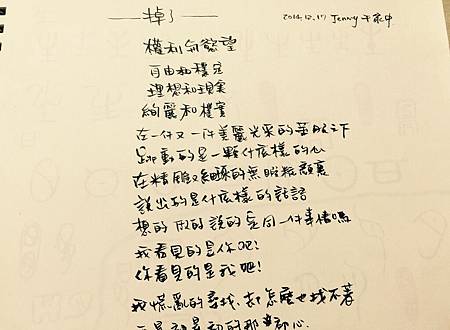 掉了
2014.12.17 Jenny 于家中
權利和慾望
自由和穩定
理想和現實
絢麗和樸實
在一件又一件美麗光采的華服之下
跳動的是一顆什麼樣的心
在精雕又細琢的無暇粧顏裏
說出的是什麼樣的話語
想的 做的 說的 是同一件事情嗎
我看見的是你吧!
你看見的是我吧!
我慌亂的尋找, 卻怎麼也找不著